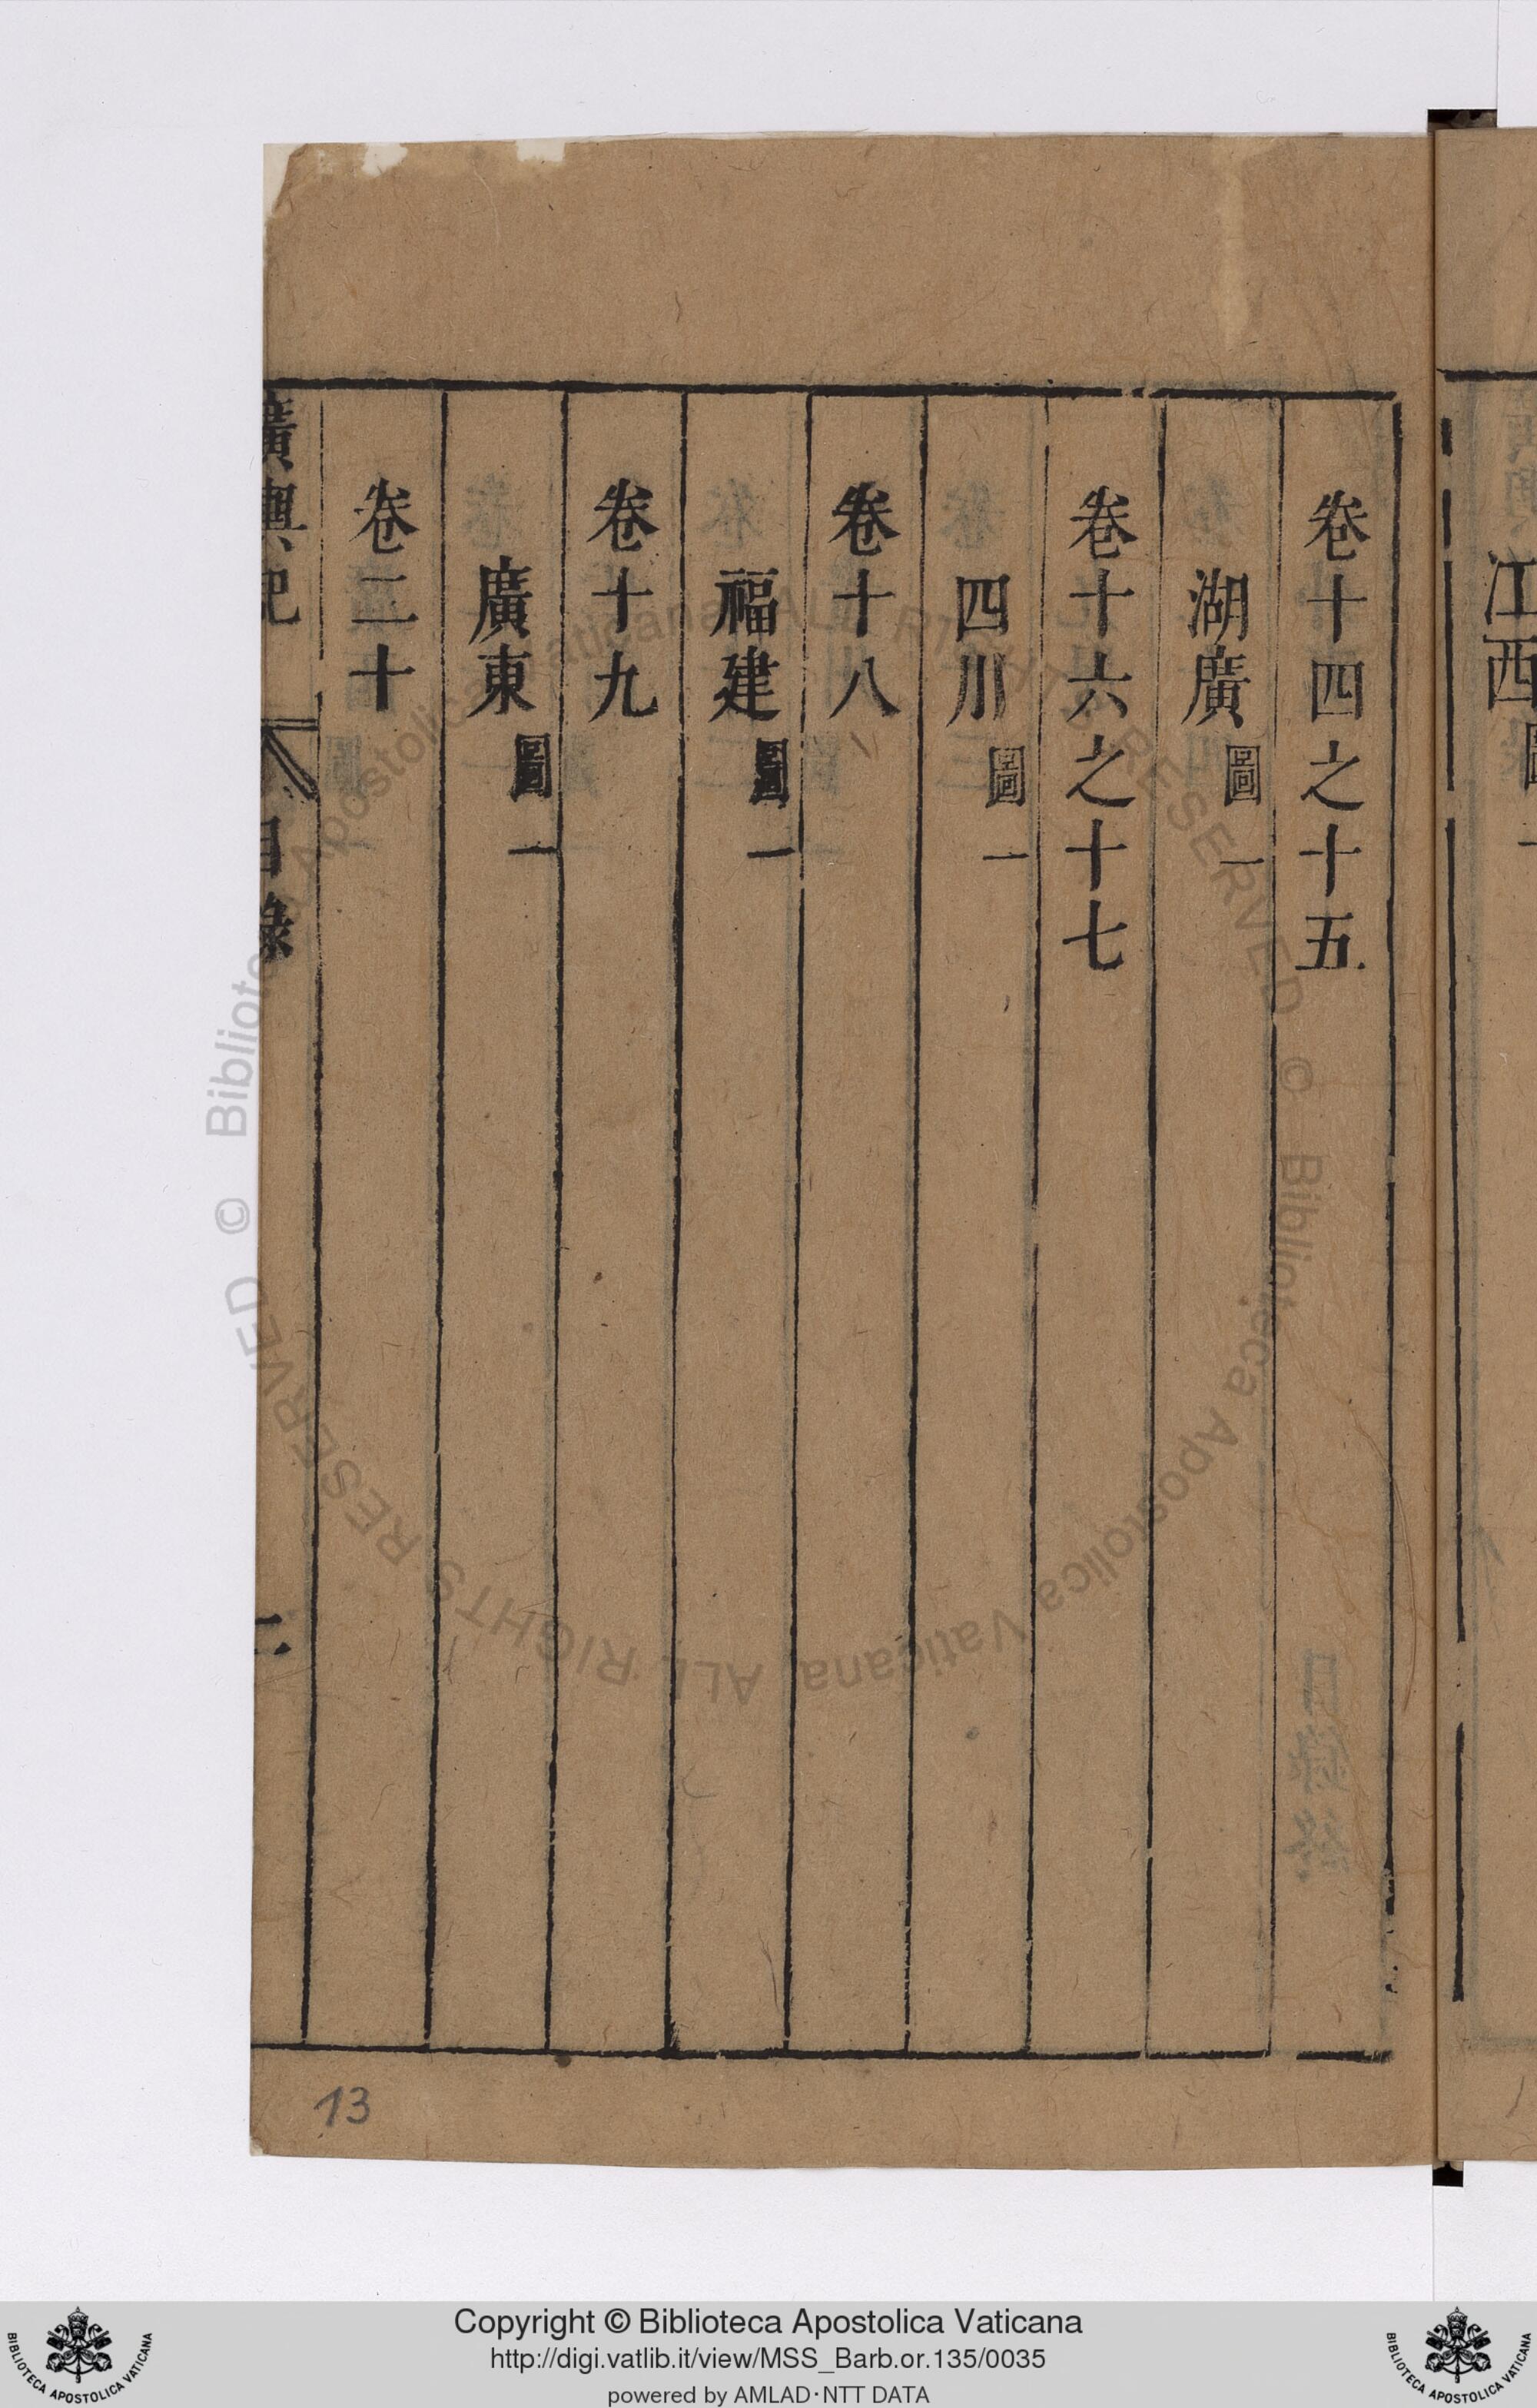 江西圖一
卷十四之十五
湖廣圖一
卷十六之十七
四川圖一
卷十八
福建圖一
卷十九
廣東圖一
卷二十
廣輿記 目錄 二
13
© Biblioteca Apostolica Vaticana ALL RIGHTS RESERVED © Biblioteca Apostolica Vaticana ALL RIGHTS RESERVED
Copyright © Biblioteca Apostolica Vaticana
http://digi.vatlib.it/view/MSS_Barb.or.135/0035
powered by AMLAD·NTT DATA
BIBLIOTECA APOSTOLICA VATICANA
BIBLIOTECA APOSTOLICA VATICANA